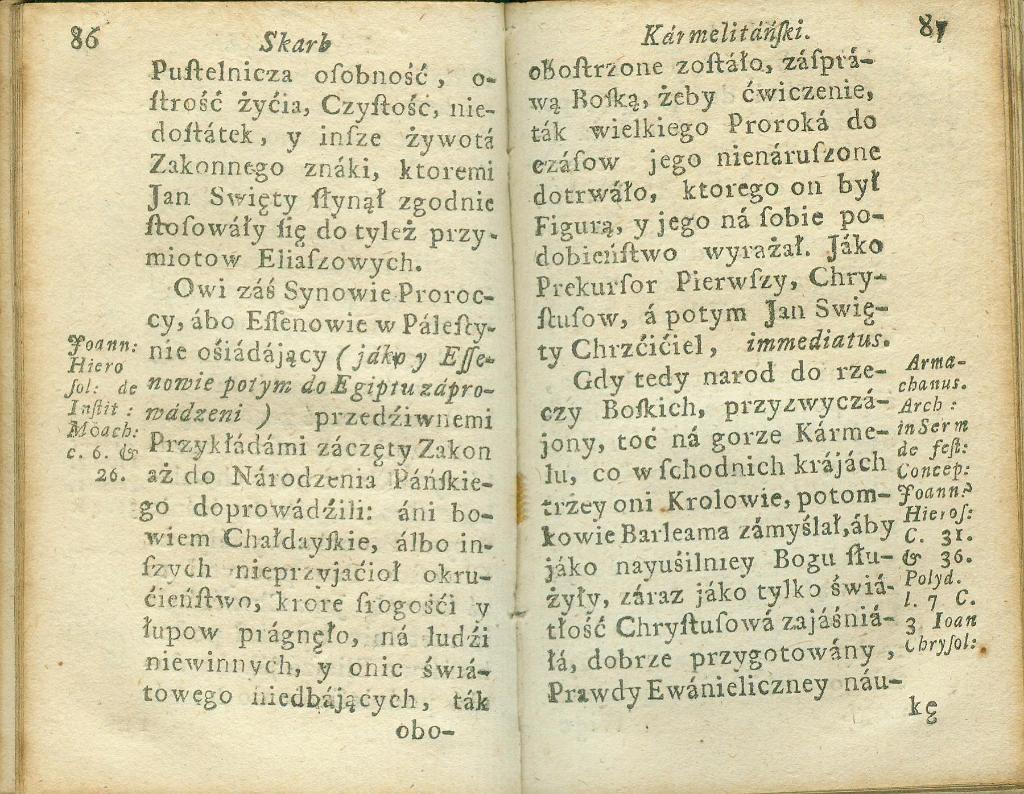 86
Skarb
Puſtelnicza oſobność, o-
ſtrość żyćia, Czyſtość, nie-
doſtátek, y inſze żywotá
Zakonnego znáki, ktoremi
Jan Swięty ſłynął zgodnie
ſtoſowáły ſię do tyleż przy-
miotow Eliaſzowych.
Owi záś Synowie Proroc-
cy, ábo Eſſenowie w Páleſty-
nie ośiádájący (jáko y Eſſe-
nowie potym do Egiptu zápro-
wádzeni) przedźiwnemi
Przykłádámi záczęty Zakon
aż do Národzenia Páńſkie-
go doprowádźili: áni bo-
wiem Chałdayſkie, álbo in-
ſzych nieprzyjaćioł okru-
ćieńſtwo, ktore ſrogośći y
łupow prágnęło, ná ludźi
niewinnych, y onic świá-
towego niedbájących, ták
obo-
Joann:
Hiero
ſol: de
Inſtit:
Moach:
c. 6. &
26.
Kármelitáńſki.
87
oboſtrzone zoſtáło, záſprá-
wą Boſką, żeby ćwiczenie,
ták wielkiego Proroká do
czáſow jego nienáruſzone
dotrwáło, ktorego on był
Figurą, y jego ná ſobie po-
dobieńſtwo wyrażał. Jáko
Prekurſor Pierwſzy, Chry-
ſtuſow, á potym Jan Swię-
ty Chrzćićiel, immediatus.
Gdy tedy narod do rze-
czy Boſkich, przyzwyczá-
jony, toć ná gorze Kárme-
lu, co w ſchodnich krájách
trzey oni Krolowie, potom-
kowie Barleama zámyślał, áby
jáko nayuśilniey Bogu ſłu-
żyły, záraz jáko tylko świá-
tłość Chryſtuſowá zajáśniá-
łá, dobrze przygotowány,
Prawdy Ewánieliczney náu-
kę
Arma-
chanus.
Arch:
in Serm
de feſt:
Concep:
Joann:
Hieroſ:
C. 31.
& 36.
Polyd.
l. 7 C.
3. Ioan
Chryſol: